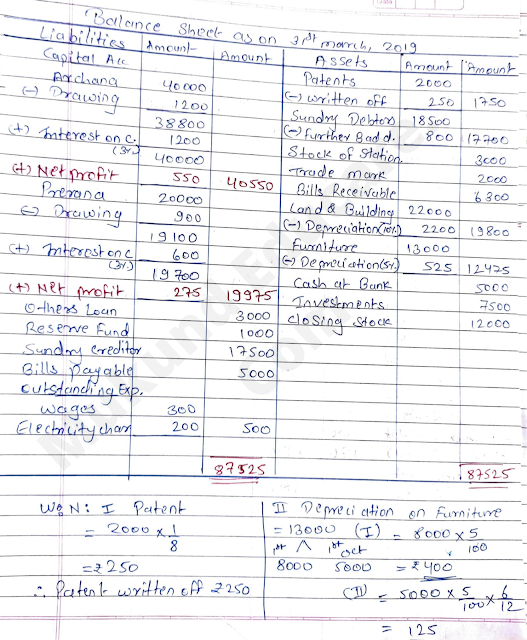 Balance Sheet as on 31st march, 2019
Liabilities Amount Amount Assets Amount Amount
Capital A/c Patents 2000
Archana 40000 (-) written off 250 1750
(-) Drawing 1200 Sundry Debtors 18500
38800 (-) Further Bad d. 800 17700
(+) Interest on c. (3%) 1200 Stock of Station. 3000
40000 Trade mark 2000
(+) Net profit 550 40550 Bills Receivable 6300
Prerana 20000 Land & Building 22000
(-) Drawing 900 (-) Depreciation (10%) 2200 19800
19100 Furniture 13000
(+) Interest on c (3%) 600 (-) Depreciation (5%) 525 12475
19700 Cash at Bank 5000
(+) Net profit 275 19975 Investments 7500
Others Loan 3000 Closing Stock 12000
Reserve Fund 1000
Sundry creditor 17500
Bills payable 5000
Outstanding Exp.
wages 300
Electricity char 200 500
87525 87525
W.N: I Patent
= 2000 x 1/8
= ₹ 250
∴ Patent written off ₹ 250
II Depreciation on Furniture
= 13000 (I) = 8000 x 5/100
1st 1st oct
8000 5000 = ₹ 400
(II) = 5000 x 5/100 x 6/12
= 125